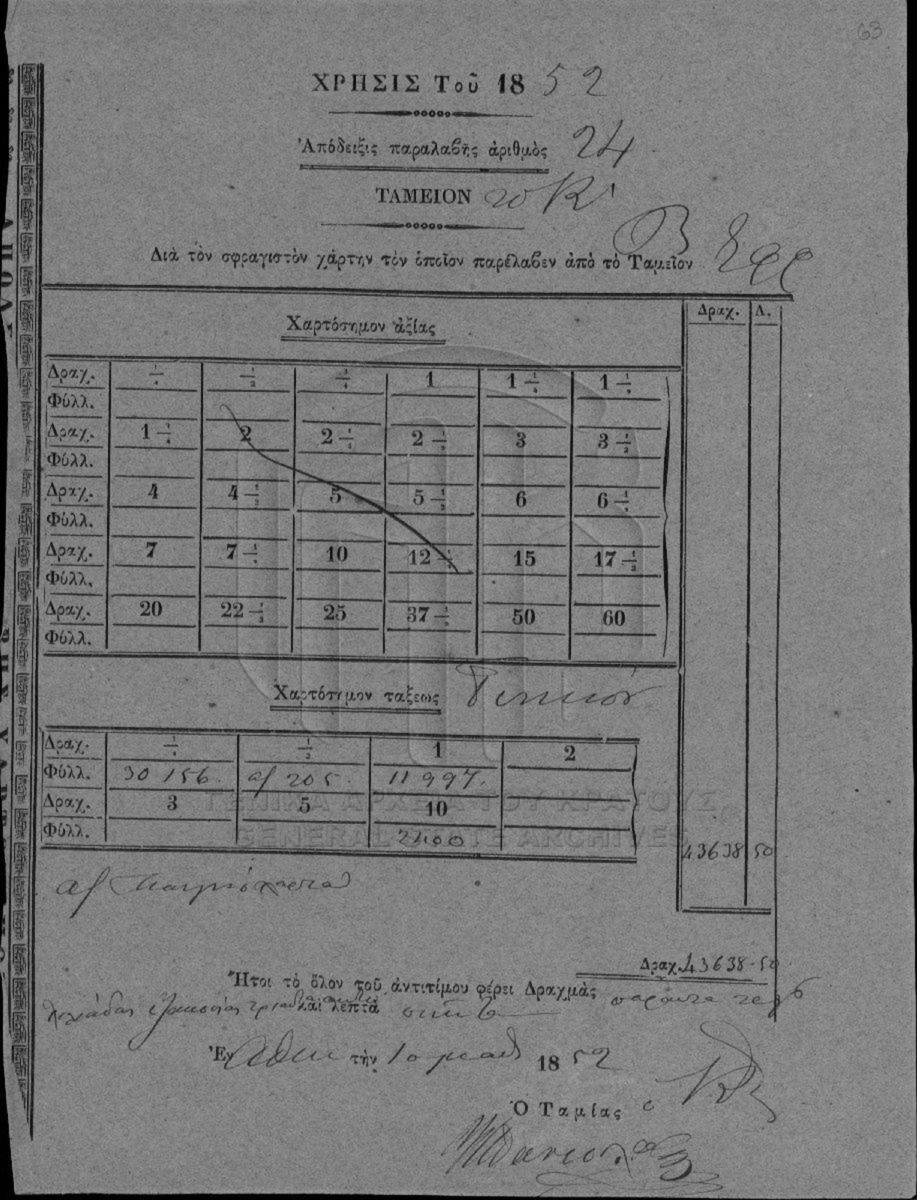 63
ΧΡΗΣΙΣ Τοῦ 1852
Ἀπόδειξις παραλαβῆς ἀριθμὸς 24
ΤΑΜΕΙΟΝ
Διὰ τὸν σφραγιστὸν χάρτην τὸν ὁποῖον παρέλαβεν ἀπὸ τὸ Ταμεῖον
Δραχ. Λ.
Χαρτόσημον ἀξίας
Δραχ. 1/4 1/2 3/4 1 1 1/4 1 1/2
Φύλλ.
Δραχ. 1 3/4 2 2 1/4 2 1/2 3 3 1/2
Φύλλ.
Δραχ. 4 4 1/2 5 5 1/2 6 6 1/2
Φύλλ.
Δραχ. 7 7 1/2 10 12 1/2 15 17 1/2
Φύλλ.
Δραχ. 20 22 1/2 25 37 1/2 50 60
Φύλλ.
Χαρτόσημον τάξεως
Δραχ. 1/4 1/2 1 2
Φύλλ. 30156. 205. 11997.
Δραχ. 3 5 10
Φύλλ. 2400
43638 50
ΓΕΝΙΚΑ ΑΡΧΕΙΑ ΤΟΥ ΚΡΑΤΟΥΣ
GENERAL STATE ARCHIVES
Δραχ. 43638-50
Ἤτοι τὸ ὅλον τοῦ ἀντιτίμου φέρει Δραχμὰς
καὶ λεπτὰ
Ἐν τὴν 1852
Ὁ Ταμίας